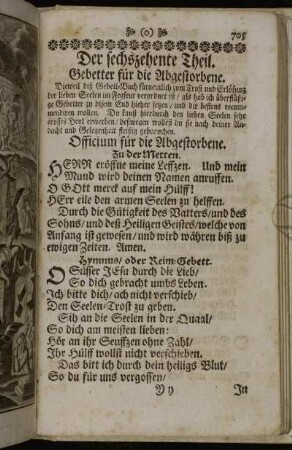 (o) 705
Der sechszehente Theil.
Gebetter für die Abgestorbene.
Dieweil diß Gebett-Buch fürnemlich zum Trost und Erlösung
der lieben Seelen im Fegfeur verordnet ist / als hab ich überflüssi-
ge Gebetter zu disem End hieher setzen / und dir bestens recom-
mendiren wollen. Du kanst hierdurch den lieben Seelen sehr
grosses Heyl erwerben / deßwegen wollest du sie nach deiner An-
dacht und Gelegenheit fleissig gebrauchen.
Officium für die Abgestorbene.
Zu der Metten.
HERR eröffne meine Leffzen. Und mein
Mund wird deinen Namen anruffen.
O GOtt merck auf mein Hülff!
HErr eile den armen Seelen zu helffen.
Durch die Gütigkeit des Vatters / und des
Sohns / und deß Heiligen Geistes / welche von
Anfang ist gewesen / und wird währen biß zu
ewigen Zeiten. Amen.
Hymnus / oder Reim-Gebett.
O Süsser JEsu durch die Lieb /
So dich gebracht umbs Leben.
Ich bitte dich / ach nicht verschieb /
Den Seelen-Trost zu geben.
Sih an die Seelen in der Quaal /
So dich am meisten lieben:
Hör an ihr Seuffzen ohne Zahl /
Ihr Hülff wollst nicht verschieben.
Das bitt ich durch dein heiligs Blut /
So du für uns vergossen /
Yy In